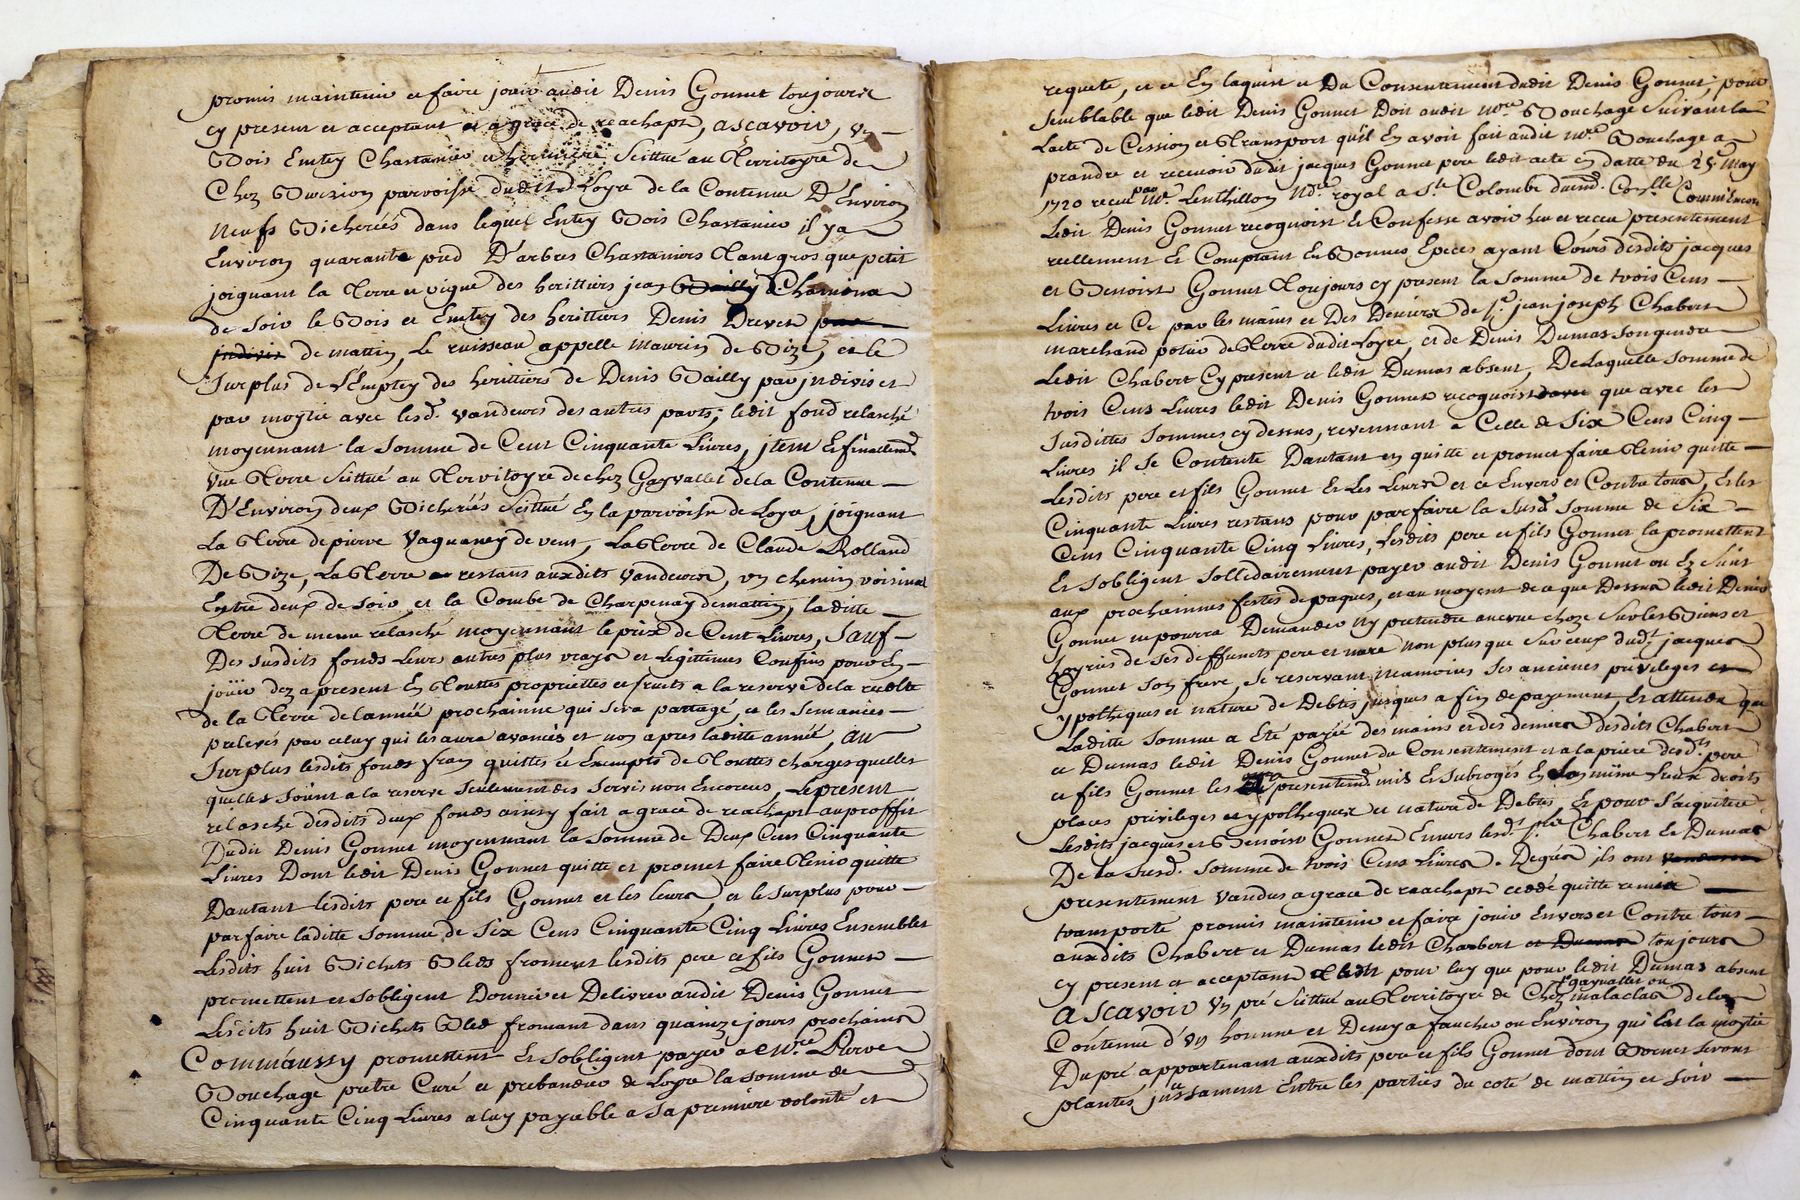 promis maintenir et faire jouir audit Denis Gonnet toujours
cy present et acceptant a grace de reachapt, ascavoir, un
Bois Emtey Chastanier et herminere scittué au Territoyre de
Chez Burzion parroisse dudit Loyre de la Contenue D'Environ
neufs Bicherées dans lequel Entey Bois Chastanier il ya
Environ quarante pied D'arbres Chastaniers Tant gros que petit
joignant la Terre et vigne des herittiers jean Chamina
de soir le Bois et Emtey des herittiers Denis Drevet
de mattin, Le ruisseau appelle Maurin de Bize, et le
surplus de L'Emptey des herittiers de Denis Bailly par jndivis et
par moytié avec lesd. vandeurs des autres parts; ledit fond relasché
moyennant la somme de Cent Cinquante Livres, jtem Et finallemt
une Terre scittué au Territoyre de chez Gayvallet de la Contenue
D'Environ deux Bicherées scittué En la parroisse de Loyre, joignant
La Terre de pierre Vaganey de vent, La Terre de Claude Rolland
De Bize, La Terre restans auxdits vandeurs, un chemin voisinal
Entre deux de soir et la Combe de Charpenay de mattin, laditte
Terre de meme relasché moyennant le prix de Cent Livres, Sauf
Des susdits fonds Leurs autres plus vrays et Legittimes Confins pour En
joüir dez a present En Touttes propriettes et fruits a la reserve de la recolte
de la Terre de lannée prochainne qui sera partagé, et les semances
prelevés par celuy qui les aura avancés et non apres laditte année, au
surplus lesdits fonds fran quittes et Exempts de Touttes charges quelles
quelles soient a la reserve seulement des servis non Encourus, Le present
relasché desdits deux fonds ainsy fait a grace de reachapt au proffit
Dudit Denis Gonnet moyennant la somme de Deux Cens Cinquante
Livres Dont ledit Denis Gonnet quitte et promet faire Tenir quitte
Dautant lesdits pere et fils Gonnet et les leurs, et le surplus pour
parfaire laditte somme de Six Cens Cinquante Cinq Livres Ensembles
Lesdits huit Bichets Bleds froment lesdits pere et fils Gonnet
promettent et sobligent Donner et Delivrer audit Denis Gonnet
Lesdits huit Bichets Bled fromant dans quainze jours prochains
Commaussy promettent Et sobligent payer a Mre Pierre
Bouchage pretre Curé et prebandier de Loyre la somme de
Cinquante Cinq Livres a luy payable a sa premiere volonté et
requete, et ce En laquit et Du Consentement dudit Denis Gonnet, pour
semblable que ledit Denis Gonnet Doit audit Mre Bouchage suivant la
Lacte de Cession et Transport qu'il En avoit fait audit Mre Bouchage a
prandre et recevoir dudit jacques Gonnet pere ledit acte en datte du 25e May
1720 receu par Me Lenthillon Nore royal a Ste Colombe duemt Conlle Comm'Encore
Ledit Denis Gonnet recognoist Et Confesse avoir heu et receu presentement
reellement Et Comptant En Bonnes Epeces ayant Cours desdits jacques
et Benoist Gonnet Toujours cy present la somme de trois Cens
Livres et Ce par les mains et Des Deniers de Sr jean joseph Chabert
marchand potier de Terre dudit Loyre, et de Denis Dumas son gendre
Ledit Chabert Cy present et ledit Dumas absent, De Laquelle somme de
trois Cens Livres ledit Denis Gonnet recognoist que avec les
susdittes sommes cy dessus, revennant a Celle de Six Cens Cinq
Livres il se Contente Dautant en quitte et promet faire Tenir quitte
Lesdits pere et fils Gonnet Et Les Leurs et ce Envers et Contre tous, Et les
Cinquante Livres restans pour parfaire la susd. somme de Six
Cens Cinquante Cinq Livres, Lesdits pere et fils Gonnet la promettent
Et sobligent sollidairement payer audit Denis Gonnet ou Ez siens
aux prochainnes festes de paques, et au moyent de ce que Dessus ledit Denis
Gonnet ne pourra Demander ny pretendre aucune choze sur les Biens et
hoyries de ses deffuncts pere et mere non plus que sur ceux dudt jacques
Gonnet son frere, se reservant neamoins ses anciens privileges
ypotheques et nature de Debtes jusques a fin de payement, Et attendu que
Laditte somme a Eté payée des mains et des deniers desdits Chabert
et Dumas ledit Denis Gonnet du Consentement et a la priere desdts pere
et fils Gonnet les a presentemt mis Et subrogés En la même lieux droits
places privileges et ypotheques et nature de Debtes, Et pour s'acquitter
Lesdits jacques et Benoist Gonnet Envers lesdts Sr Chabert Et Dumas
De la susd. somme de trois Cens Livres. De gré ils ont
presentement vandus a grace de reachapt ceddé quitte remis
transporté promis maintenir et faire jouir Envers et Contre tous
auxdits Chabert et Dumas ledit Chabert et Dumas toujours
cy present et acceptant pour luy que pour ledit Dumas absent
Ascavoir un pré scittué au Territoyre de Chez gayvallet ou malaclas de la
Contenue d'un homme et Demy a faucher ou Environ qui Est la moytié
Du pré appartenant auxdits pere et fils Gonnet dont Bornes seront
plantés jncessament Entre les parties du coté de mattin et soir